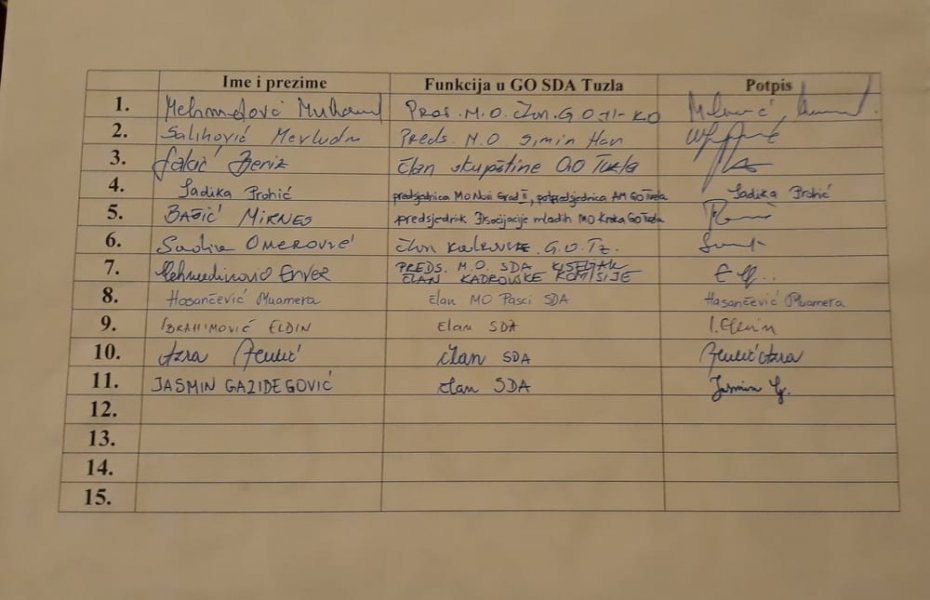 Ime i prezime Funkcija u GO SDA Tuzla Potpis
1. Mehmedović Muhamed Preds. M.O. Član. G.O.
2. Salihović Mevludin Preds. M.O Simin Han
3. Član skupštine GO Tuzla
4. Sadika Prohić predsjednica MO Novi Grad II, potpredsjednica AM GO Tuzla Sadika Prohić
5. BAŠIĆ MIRNES predsjednik Asocijacije mladih MO Kreka GO Tuzla
6. Sadika OMEROVIĆ Član G.O. Tz.
7. Enver PREDS. M.O. SDA KISELJAK
ČLAN KADROVSKE KOMISIJE
8. Hasančević Muamera Član MO Pasci SDA Hasančević Muamera
9. IBRAHIMOVIĆ ELDIN Član SDA
10. Azra član SDA Azra
11. JASMIN GAZIDEGOVIĆ član SDA Jasmin G.
12.
13.
14.
15.